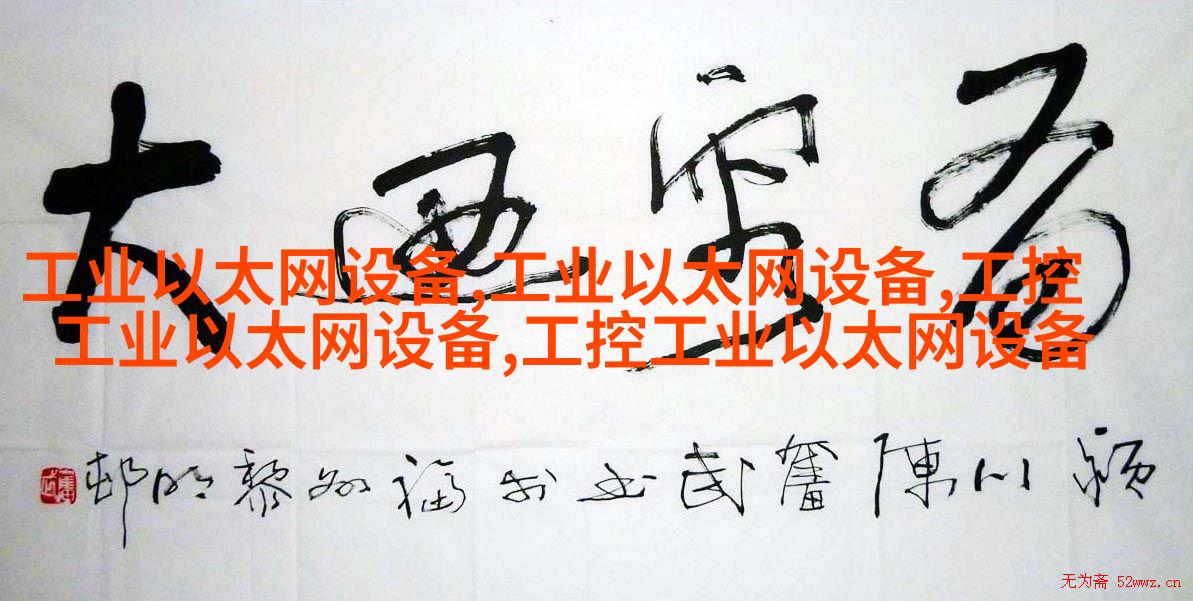 有容迺大
工业以太网设备,工业以太网设备,工控
工业以太网设备,工控工业以太网设备
颍川陳奮武书於福州黎明邨
无为斋 52wwz.cn